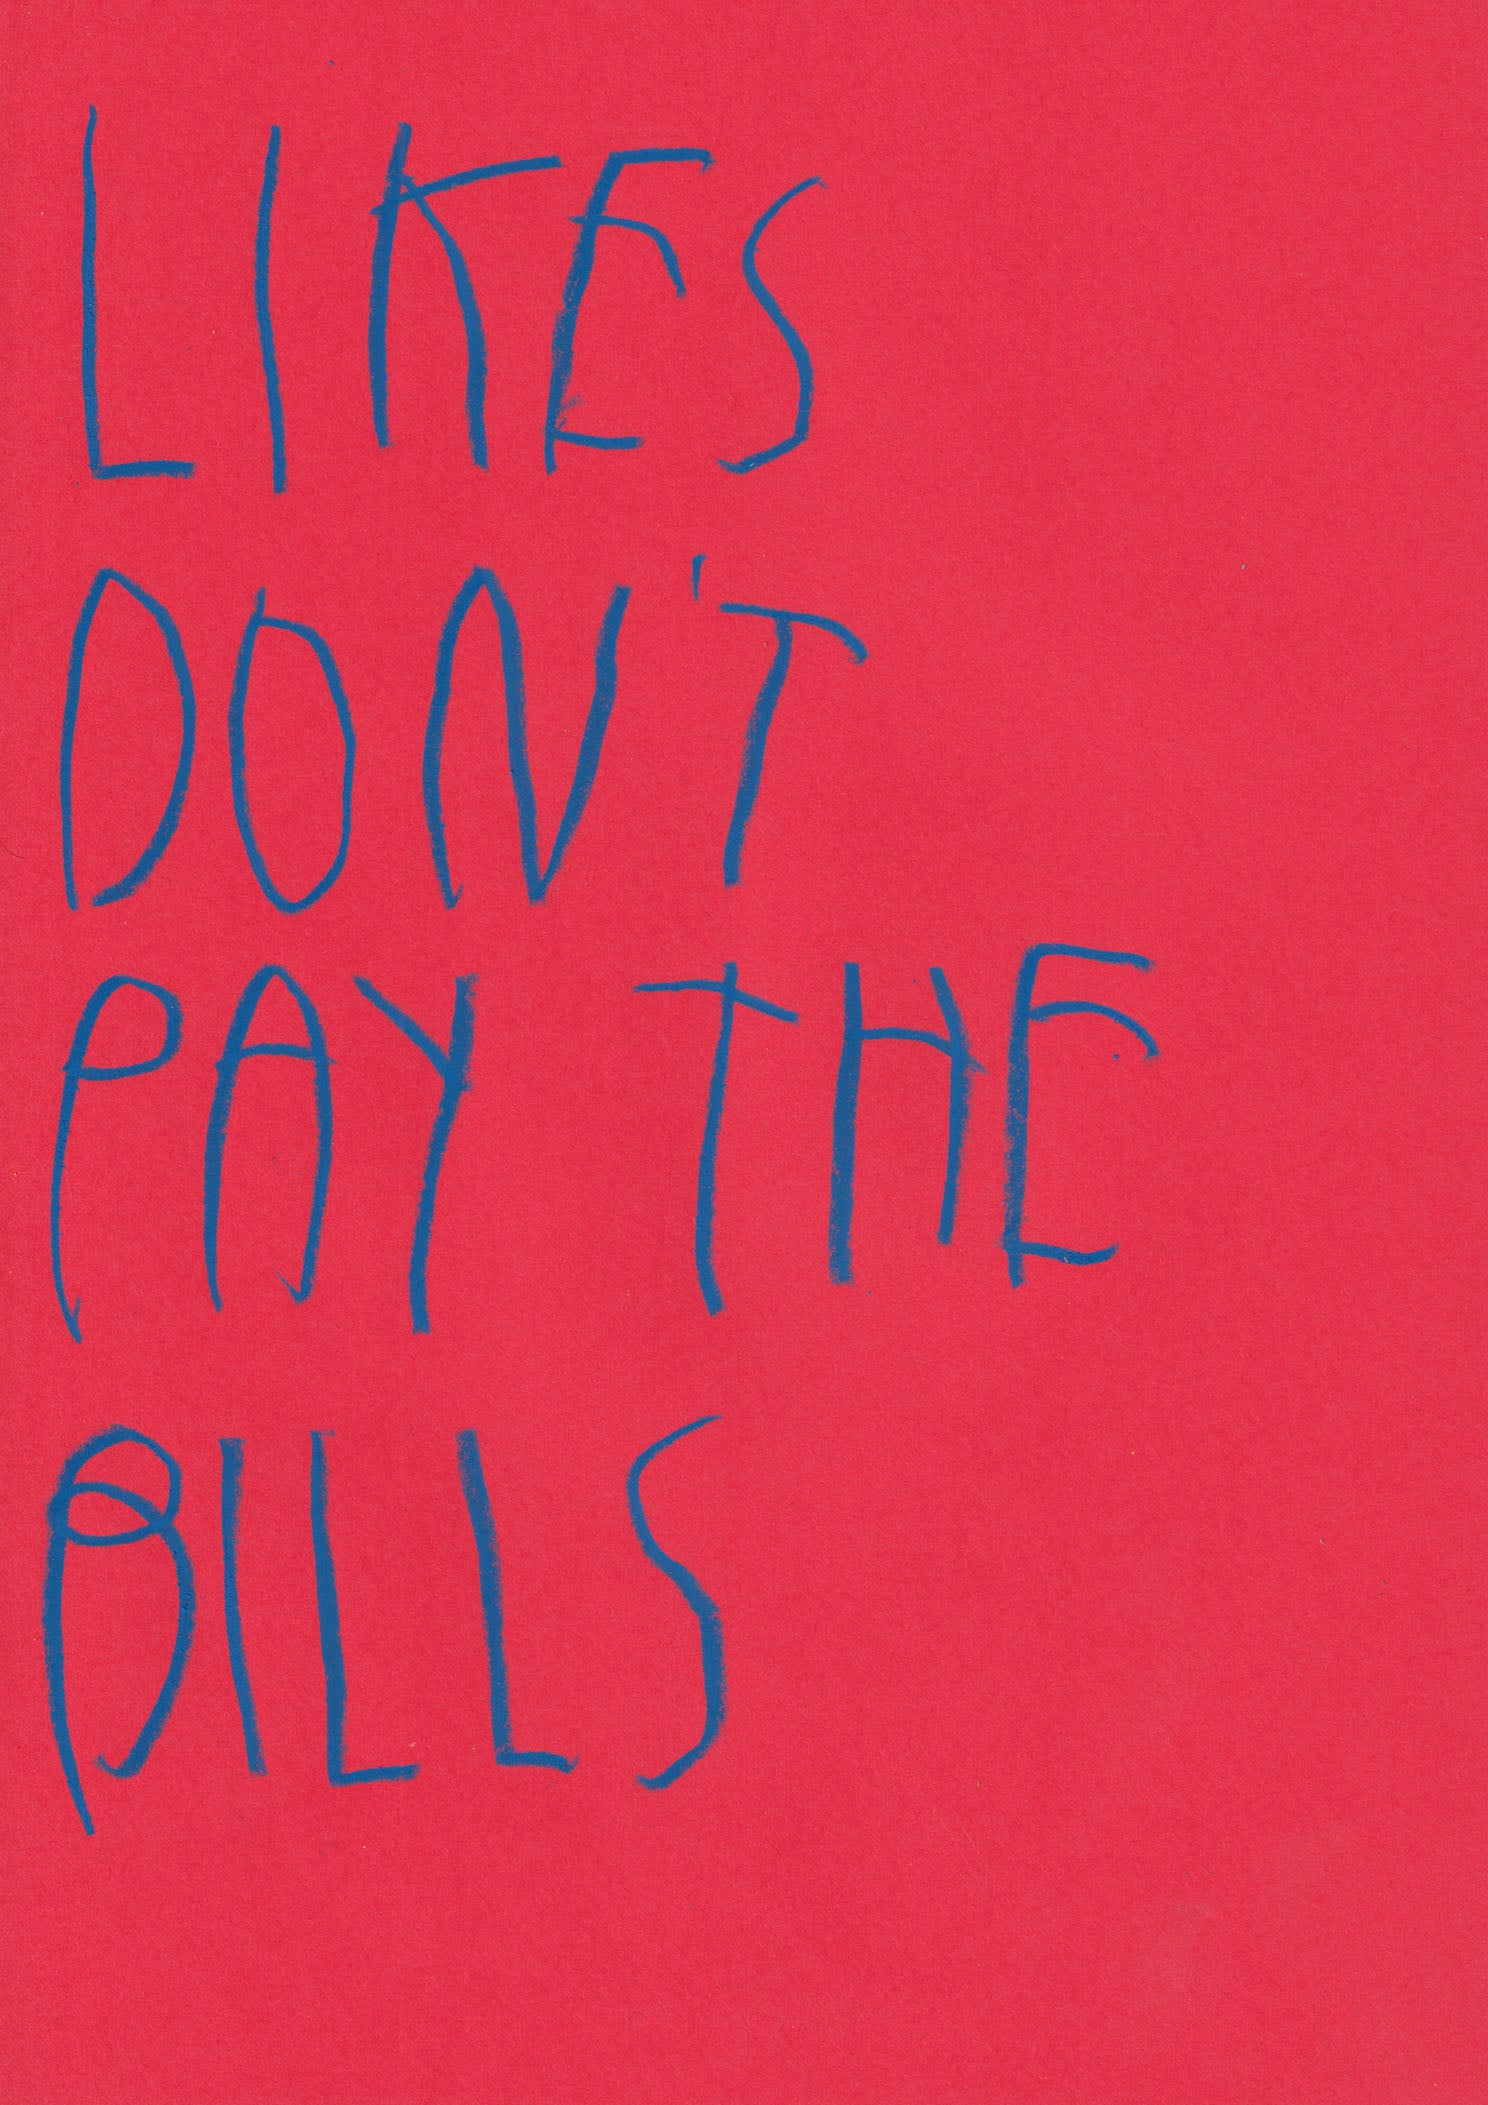 LIKES
DON'T
PAY THE
BILLS